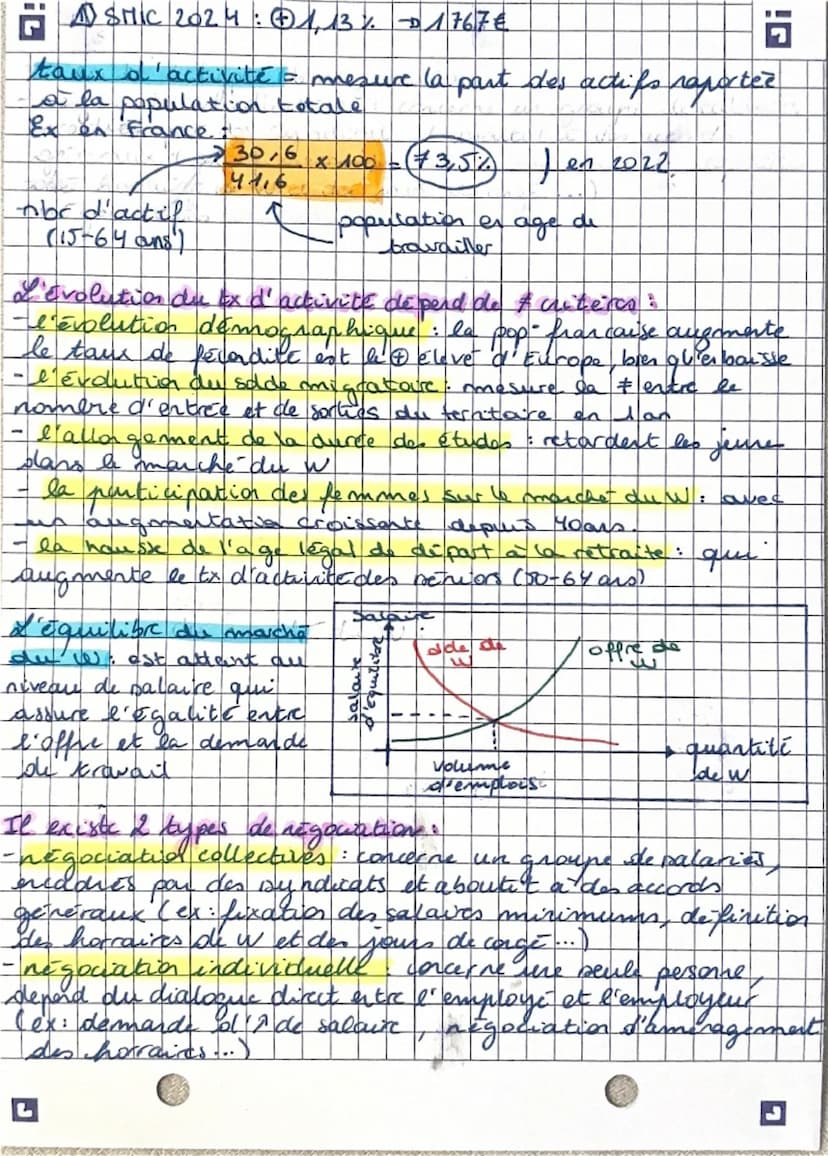 ⚠ SMIC 2024 : ⊕ 1,13% → 1767€
taux d'activité = mesure la part des actifs raportez
à la population totale
Ex en France :
30,6 / 41,6 x 100 = 73,5% ) en 2022
nbr d'actif
(15-64 ans)
population en age de
travailler
L'évolution du tx d'activité dépend de ≠ critères :
- l'évolution démographique : la pop° française augmente
le taux de fécondité est le ⊕ élevé d'Europe, bien qu'en baisse
- l'évolution du solde migratoire : mesure la ≠ entre le
nombre d'entrée et de sorties du territoire en 1 an
- l'allongement de la durée des études : retardent les jeune
dans le marché du W
- la participation des femmes sur le marché du W : avec
un augmentatio croissante depuis 40ans.
- la hausse de l'age légal de départ à la retraite : qui
augmente le tx d'activité des séniors (50-64 ans)
L'équilibre du marché
du W : est atteint au
niveau de salaire qui
assure l'égalité entre
l'offre et la demande
de travail
Salaire
salaire
d'équilibre
dde de
W
offre de
W
quantité
de W
volume
d'emplois
Il existe 2 types de négociation :
- négociation collectives : concerne un groupe de salariés,
encadrés par des syndicats et aboutit à des accords
généraux (ex : fixation des salaires minimums, définition
des horraires de W et des jours de congé...)
- négociation individuelle : concerne une seule personne,
dépend du dialogue direct entre l'employé et l'employeur
(ex : demande d'↗ de salaire, négociation d'aménagement
des horraires...)